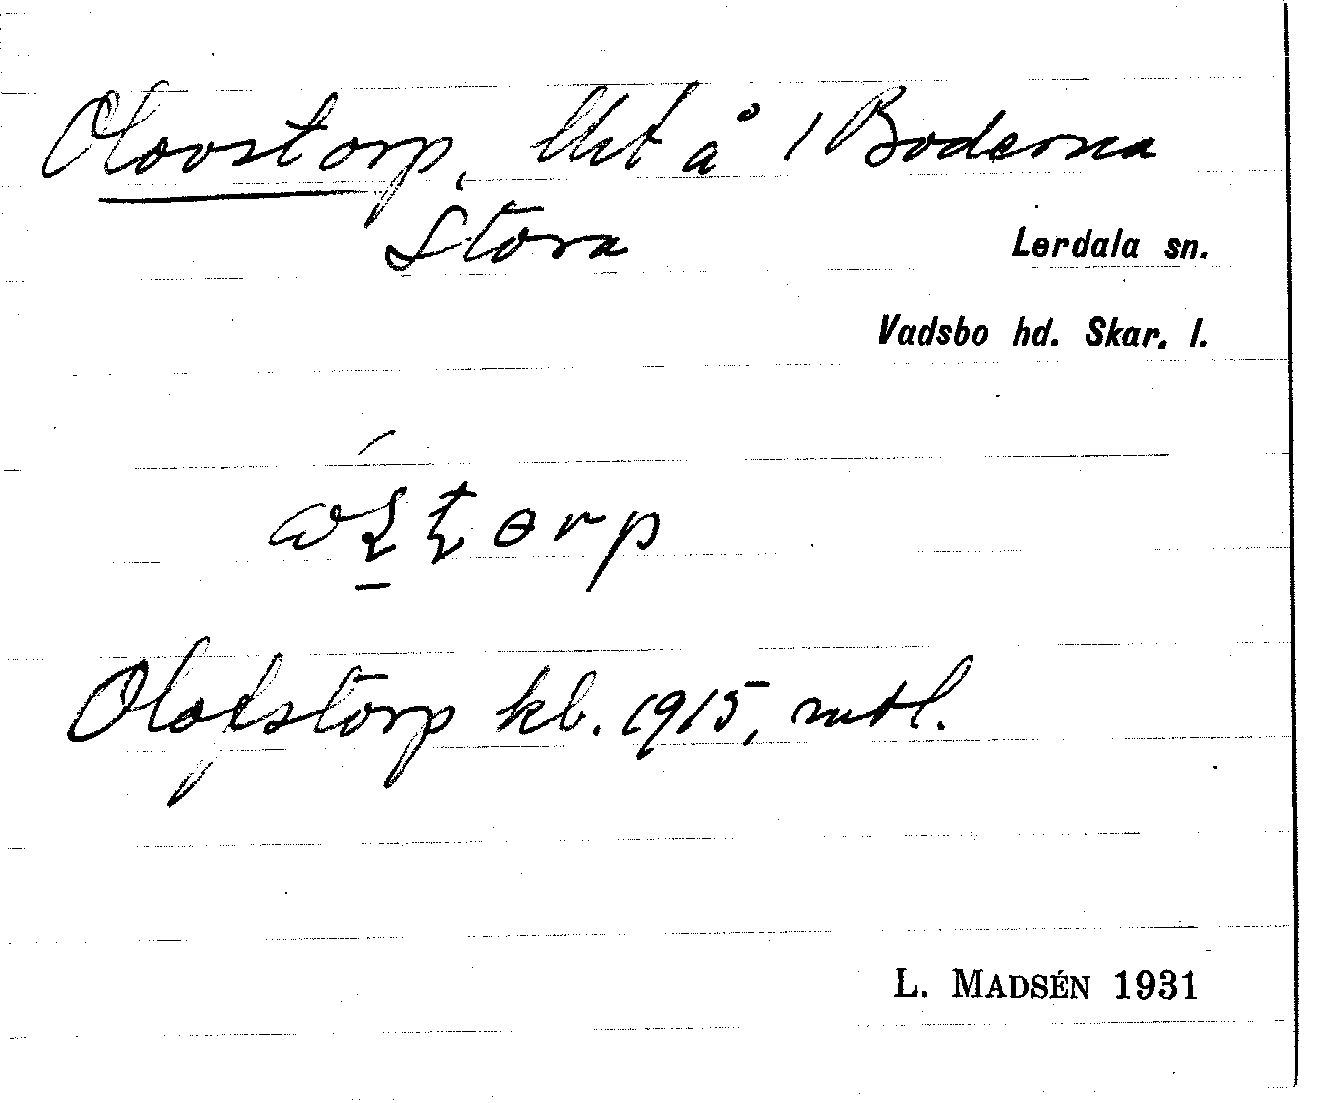 Olovstorp, lht å 1 Boderna
Stora
Lerdala sn.
Vadsbo hd. Skar. l.
Olofstorp kb. 1915, mtl.
L. MADSÉN 1931